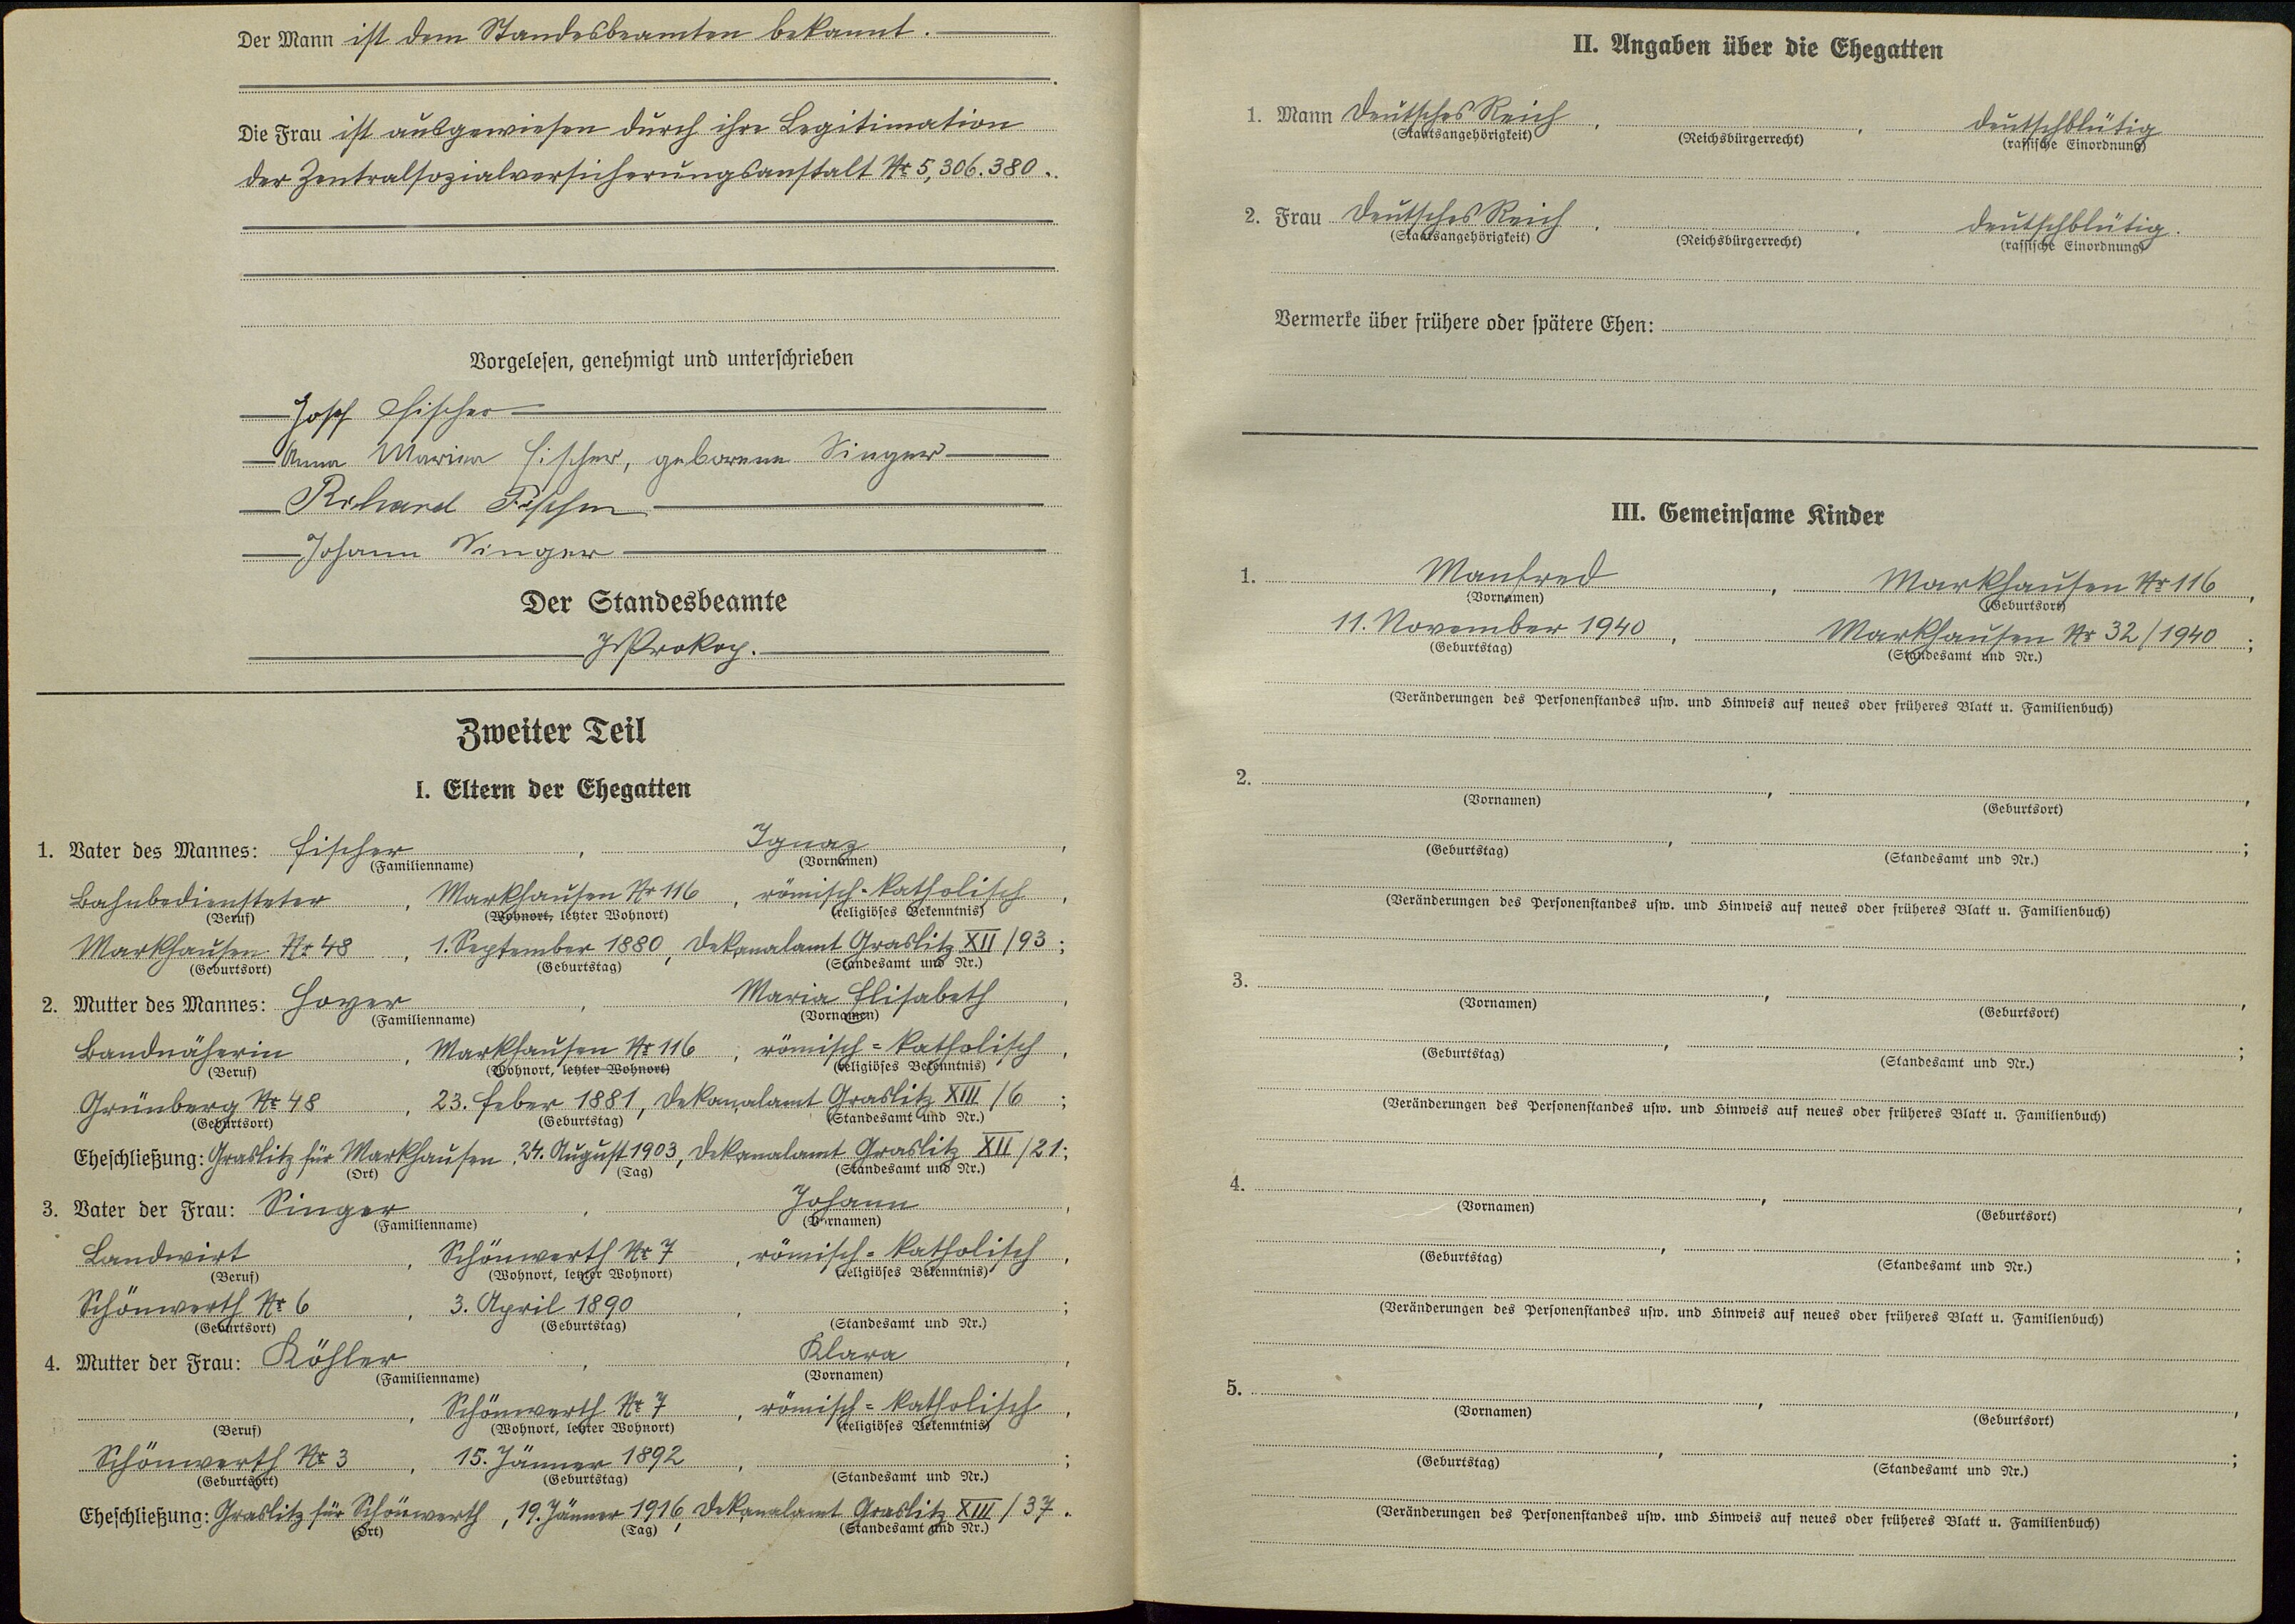 Der Mann ist dem Standesbeamten bekannt.
Die Frau ist ausgewiesen durch ihre Legitimation
der Zentralsozialversicherungsanstalt Nr 5,306.380.
Vorgelesen, genehmigt und unterschrieben
Josef Fischer
Anna Maria Fischer, geborene Singer
Richard Fischer
Johann Singer
Der Standesbeamte
Prokop.
Zweiter Teil
I. Eltern der Ehegatten
1. Vater des Mannes: Fischer, Ignaz,
(Familienname) (Vornamen)
Bahnbediensteter, Markhausen Nr 116, römisch-katholisch,
(Beruf) (Wohnort, letzter Wohnort) (religiöses Bekenntnis)
Markhausen Nr 48, 1. September 1880, Dekanalamt Graslitz XII/93;
(Geburtsort) (Geburtstag) (Standesamt und Nr.)
2. Mutter des Mannes: Hoyer, Maria Elisabeth,
(Familienname) (Vornamen)
Bandnäherin, Markhausen Nr 116, römisch=katholisch,
(Beruf) (Wohnort, letzter Wohnort) (religiöses Bekenntnis)
Grünberg Nr 48, 23. Feber 1881, Dekanalamt Graslitz XIII/6;
(Geburtsort) (Geburtstag) (Standesamt und Nr.)
Eheschließung: Graslitz für Markhausen, 24. August 1903, Dekanalamt Graslitz XII/21;
(Ort) (Tag) (Standesamt und Nr.)
3. Vater der Frau: Singer, Johann,
(Familienname) (Vornamen)
Landwirt, Schönwerth Nr 7, römisch=katholisch,
(Beruf) (Wohnort, letzter Wohnort) (religiöses Bekenntnis)
Schönwerth Nr 6, 3. April 1890, ;
(Geburtsort) (Geburtstag) (Standesamt und Nr.)
4. Mutter der Frau: Köhler, Klara,
(Familienname) (Vornamen)
, Schönwerth Nr 7, römisch=katholisch,
(Beruf) (Wohnort, letzter Wohnort) (religiöses Bekenntnis)
Schönwerth Nr 3, 15. Jänner 1892, ;
(Geburtsort) (Geburtstag) (Standesamt und Nr.)
Eheschließung: Graslitz für Schönwerth, 19. Jänner 1916, Dekanalamt Graslitz XIII/37.
(Ort) (Tag) (Standesamt und Nr.)
II. Angaben über die Ehegatten
1. Mann Deutsches Reich, , deutschblütig
(Staatsangehörigkeit) (Reichsbürgerrecht) (rassische Einordnung)
2. Frau Deutsches Reich, , deutschblütig.
(Staatsangehörigkeit) (Reichsbürgerrecht) (rassische Einordnung)
Vermerke über frühere oder spätere Ehen:
III. Gemeinsame Kinder
1. Manfred, Markhausen Nr 116,
(Vornamen) (Geburtsort)
11. November 1940, Markhausen Nr 32/1940;
(Geburtstag) (Standesamt und Nr.)
(Veränderungen des Personenstandes usw. und Hinweis auf neues oder früheres Blatt u. Familienbuch)
2. , ,
(Vornamen) (Geburtsort)
, ;
(Geburtstag) (Standesamt und Nr.)
(Veränderungen des Personenstandes usw. und Hinweis auf neues oder früheres Blatt u. Familienbuch)
3. , ,
(Vornamen) (Geburtsort)
, ;
(Geburtstag) (Standesamt und Nr.)
(Veränderungen des Personenstandes usw. und Hinweis auf neues oder früheres Blatt u. Familienbuch)
4. , ,
(Vornamen) (Geburtsort)
, ;
(Geburtstag) (Standesamt und Nr.)
(Veränderungen des Personenstandes usw. und Hinweis auf neues oder früheres Blatt u. Familienbuch)
5. , ,
(Vornamen) (Geburtsort)
, ;
(Geburtstag) (Standesamt und Nr.)
(Veränderungen des Personenstandes usw. und Hinweis auf neues oder früheres Blatt u. Familienbuch)